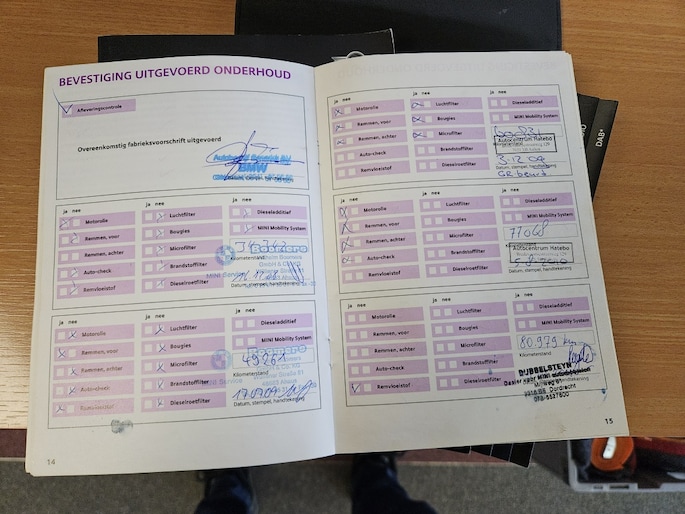 BEVESTIGING UITGEVOERD ONDERHOUD
Afleveringscontrole
Overeenkomstig fabrieksvoorschrift uitgevoerd
BMW
ja nee ja nee ja nee
Motorolie Luchtfilter Dieseladditief
Remmen, voor Bougies MINI Mobility System
Remmen, achter Microfilter
Auto-check Brandstoffilter Kilometerstand
Remvloeistof Dieselroetfilter Datum, stempel, handtekening
MINI Service
ja nee ja nee ja nee
Motorolie Luchtfilter Dieseladditief
Remmen, voor Bougies MINI Mobility System
Remmen, achter Microfilter 49261
Auto-check Brandstoffilter Kilometerstand
Remvloeistof Dieselroetfilter Datum, stempel, handtekening
14
ja nee ja nee ja nee
Motorolie Luchtfilter Dieseladditief
Remmen, voor Bougies MINI Mobility System
Remmen, achter Microfilter
Auto-check Brandstoffilter Autocentrum Hatebo
Remvloeistof Dieselroetfilter
3.12.09
GR beurt
ja nee ja nee ja nee
Motorolie Luchtfilter Dieseladditief
Remmen, voor Bougies MINI Mobility System
Remmen, achter Microfilter 77068
Auto-check Brandstoffilter Autocentrum Hatebo
Remvloeistof Dieselroetfilter Datum, stempel, handtekening
ja nee ja nee ja nee
Motorolie Luchtfilter Dieseladditief
Remmen, voor Bougies MINI Mobility System
Remmen, achter Microfilter 80.979 km
Auto-check Brandstoffilter Kilometerstand
Remvloeistof Dieselroetfilter
DUBBELSTEYN
Dealer voor MINI
Dordrecht
078-6527800
15
DAB+